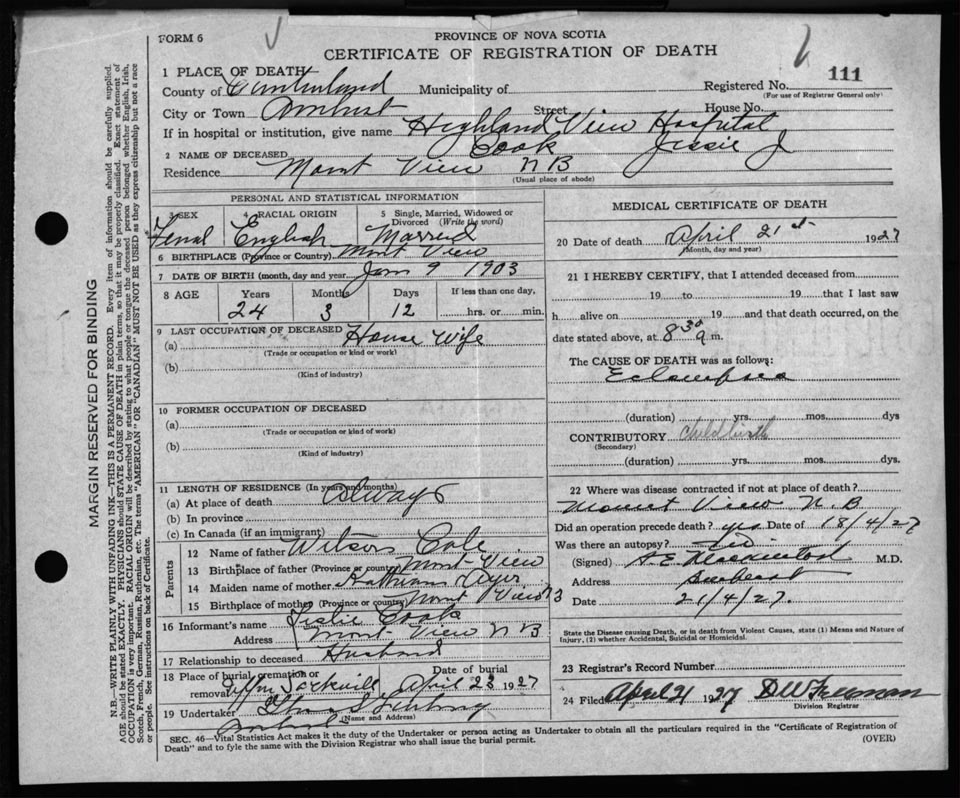 FORM 6
PROVINCE OF NOVA SCOTIA
CERTIFICATE OF REGISTRATION OF DEATH
111
1 PLACE OF DEATH
County of Cumberland Municipality of Registered No.
(For use of Registrar General only)
City or Town Amherst Street House No.
If in hospital or institution, give name Highland View Hospital
2 NAME OF DECEASED Cook Jessie J
Residence Mount View N B
(Usual place of abode)
PERSONAL AND STATISTICAL INFORMATION
3 SEX 4 RACIAL ORIGIN 5 Single, Married, Widowed or Divorced (Write the word)
Femal English Married
6 BIRTHPLACE (Province or Country) Mont View
7 DATE OF BIRTH (month, day and year) Jan 9 1903
8 AGE Years Months Days If less than one day,
24 3 12 hrs. or min.
9 LAST OCCUPATION OF DECEASED
(a) House Wife
(Trade or occupation or kind or work)
(b)
(Kind of industry)
10 FORMER OCCUPATION OF DECEASED
(a)
(Trade or occupation or kind of work)
(b)
(Kind of industry)
11 LENGTH OF RESIDENCE (In years and months)
(a) At place of death Always
(b) In province
(c) In Canada (if an immigrant)
Parents
12 Name of father Wilson Cole
13 Birthplace of father (Province or country) Mont View
14 Maiden name of mother
15 Birthplace of mother (Province or country) Mont View
16 Informant's name Leslie Cook
Address Mont View N B
17 Relationship to deceased Husband
18 Place of burial, cremation or removal Upper Sackville Date of burial April 23 1927
19 Undertaker
(Name and Address)
Amherst
MEDICAL CERTIFICATE OF DEATH
20 Date of death April 21st 1927
(Month, day and year)
21 I HEREBY CERTIFY, that I attended deceased from
19 to 19 that I last saw
h alive on 19 and that death occurred, on the
date stated above, at 8 30 a m.
The CAUSE OF DEATH was as follows:
Eclampsia
(duration) yrs. mos. dys
CONTRIBUTORY Childbirth
(Secondary)
(duration) yrs. mos. dys.
22 Where was disease contracted if not at place of death?
Mount View N.B
Did an operation precede death? yes Date of 18/4/27
Was there an autopsy?
(Signed) M.D.
Address Amherst
Date 21/4/27.
State the Disease causing Death, or in death from Violent Causes, state (1) Means and Nature of
Injury, (2) whether Accidental, Suicidal or Homicidal.
23 Registrar's Record Number
24 Filed April 21 1927 D W Freeman
Division Registrar
SEC. 46—Vital Statistics Act makes it the duty of the Undertaker or person acting as Undertaker to obtain all the particulars required in the "Certificate of Registration of
Death" and to fyle the same with the Division Registrar who shall issue the burial permit.
(OVER)
MARGIN RESERVED FOR BINDING
N.B.—WRITE PLAINLY WITH UNFADING INK—THIS IS A PERMANENT RECORD. Every item of information should be carefully supplied.
AGE should be stated EXACTLY. PHYSICIANS should STATE CAUSE OF DEATH in plain terms, so that it may be properly classified. Exact statement of
OCCUPATION is very important. RACIAL ORIGIN will be described by stating to what people or tongue the deceased person belonged whether English, Irish,
Scotch, French, German, Russian, Ruthenian, etc. The terms "AMERICAN" OR "CANADIAN" MUST NOT BE USED as they express citizenship but not a race
or people. See instructions on back of Certificate.